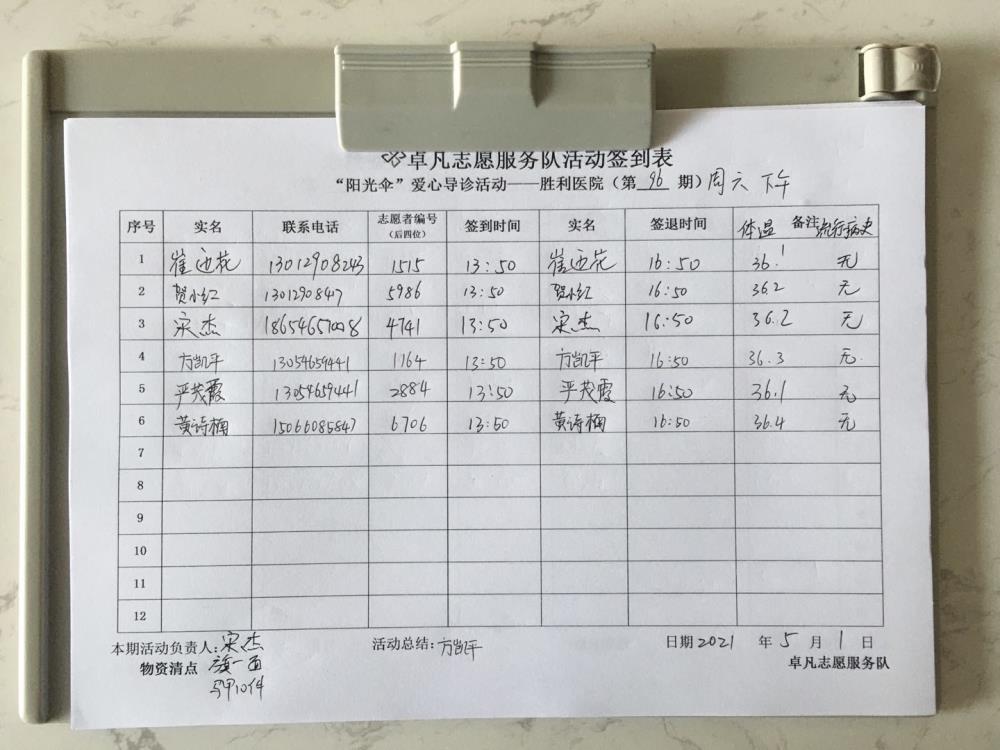 卓凡志愿服务队活动签到表
“阳光伞”爱心导诊活动——胜利医院（第 96 期）周六 下午
序号 实名 联系电话 志愿者编号（后四位） 签到时间 实名 签退时间 体温 备注 流行病史
1 崔迎花 13012908243 1515 13:50 崔迎花 16:50 36.1 无
2 贺小红 1301290847 5986 13:50 贺小红 16:50 36.2 无
3 宋杰 18654657008 4741 13:50 宋杰 16:50 36.2 无
4 方凯平 13054659441 1164 13:50 方凯平 16:50 36.3 无
5 严茂霞 13054659441 2884 13:50 严茂霞 16:50 36.1 无
6 黄诗楠 15066085847 6706 13:50 黄诗楠 16:50 36.4 无
7
8
9
10
11
12
本期活动负责人：宋杰 活动总结：方凯平 日期 2021 年 5 月 1 日
物资清点 旗一面 卓凡志愿服务队
马甲10件